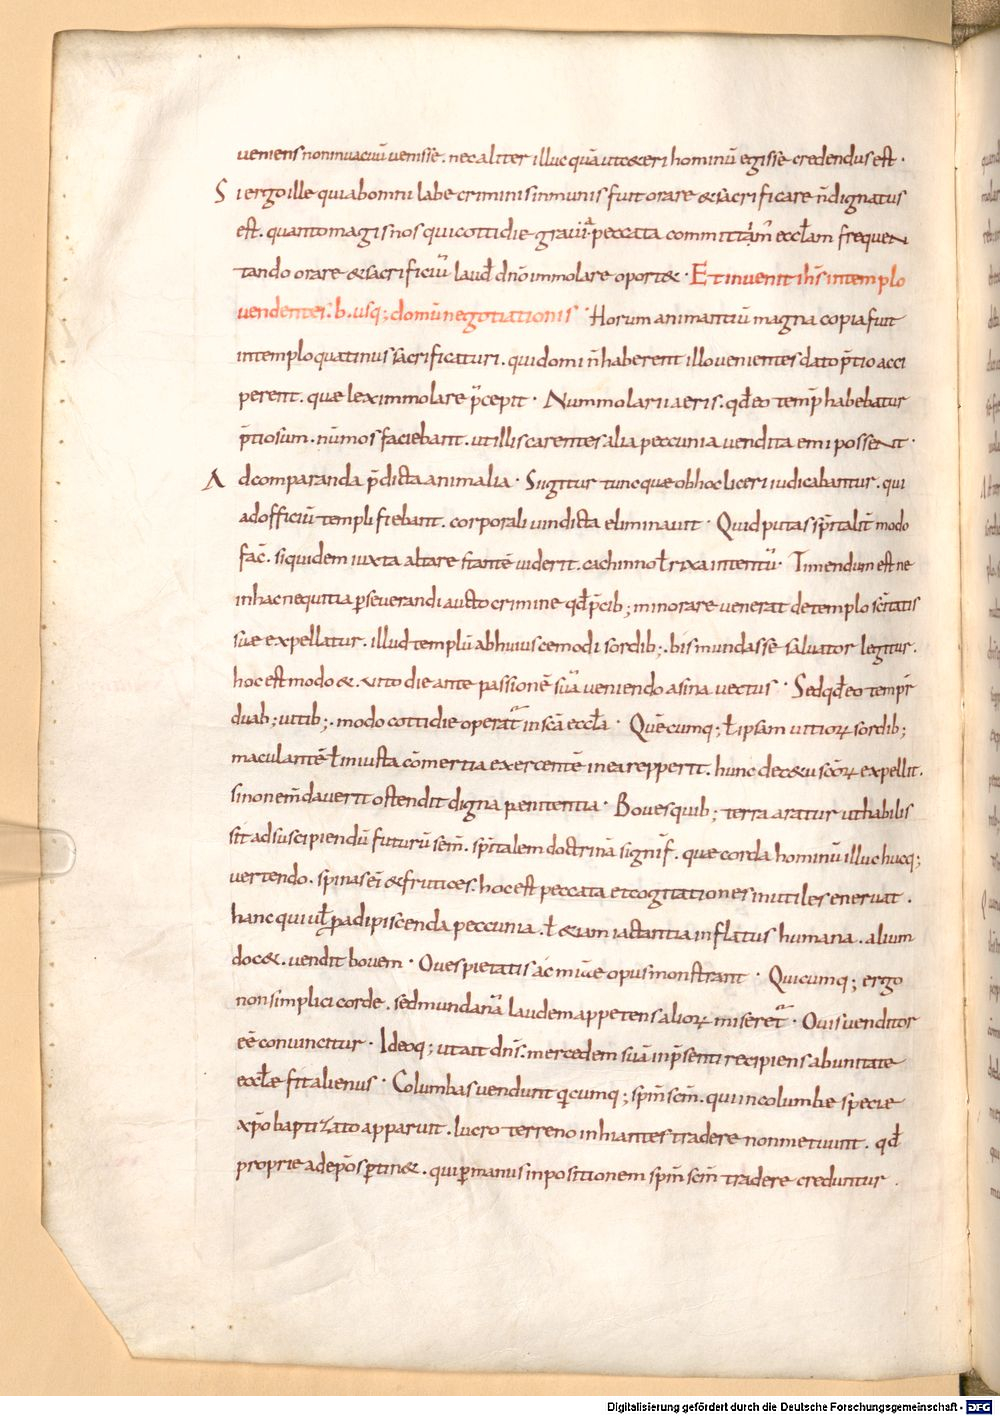 ueniens non inuacuũ uenisse. nec aliter illuc quã ut & ceri hominũ egisse credendus est.
Si ergo ille qui ab omni labe criminis inmunis fuit orare & sacrificare ñ dignatus
est. quanto magis nos qui cottidie grauia peccata committim̃ eccłam frequen
tando orare & sacrificiũ laud̃ dñoimmolare oport&. Et inuenit ihs̃ in templo
uendentes. b. usq; domũ negotiationis. Horum animantiũ magna copia fuit
in templo quatinus sacrificaturi. qui domi ñ haberent illo uenientes dato p̃tio acci
perent. quæ lex immolare p̃cepit. Nummolarii aeris. qđ eo temp̃ habebatur
p̃tiosum. nũmos faciebant. ut illis carentes alia peccunia uendita emi possent.
Ad comparanda p̃dicta animalia. Si igitur tunc quæ ob hoc liceri iudicabantur. qui
ad officiũ templi fiebant. corporali uindicta eliminauit. Quid putas sp̃italit̃ modo
fac̃. si quidem iuxta altare stantẽ uiderit. cachinno ł rixa intentũ. Timendum est ne
in hac nequitia p̱seuerandi aucto crimine qđ p̃cib; minorare uenerat de templo sc̃itatis
suæ expellatur. illud templũ ab huiuscemodi sordib; bis mundasse saluator legitur.
hoc est modo &. xito die ante passionẽ suã ueniendo asina uectus. Sed qđ eo temp̃r
duab; uitib; modo cottidie operat̃ in scã eccła. Quẽcumq; ł ipsam uitioꝝ sordib;
maculantẽ ł iniusta cõmertia exercentẽ in ea repperit. hunc de c&u scõꝝ expellit.
si non em̃dauerit ostendit digna penitentia. Boues quib; terra aratur ut habilis
sit ad suscipiendũ futurũ sem̃. sp̃italem doctrinã signif̃. quæ corda hominũ illuc hucq;
uertendo. spinas ei & frutices. hoc est peccata et cogitationes inutiles eneruat.
hanc qui uł p̱ adipiscenda peccunia. ł &iam iactantia inflatus humana. alium
doc&. uendit bouem. Oues pietatis ac mĩæ opus monstrant. Quicumq; ergo
non simplici corde. sed mundanã laudem appetens alioꝝ miseret̃. Ouis uenditor
eẽ conuincitur. Ideoq; ut ait dñs. mercedem suã in p̃senti recipiens ab unitate
eccłæ fit alienus. Columbas uendunt q̃cumq; sp̃m scm̃. qui in columbæ specie
xp̃o baptizato apparuit. lucro terreno inhiantes tradere non metuunt. qđ
proprie ad ep̃os p̱tin&. qui p̱ manus inpositionem sp̃m scm̃ tradere creduntur.
Digitalisierung gefördert durch die Deutsche Forschungsgemeinschaft - DFG